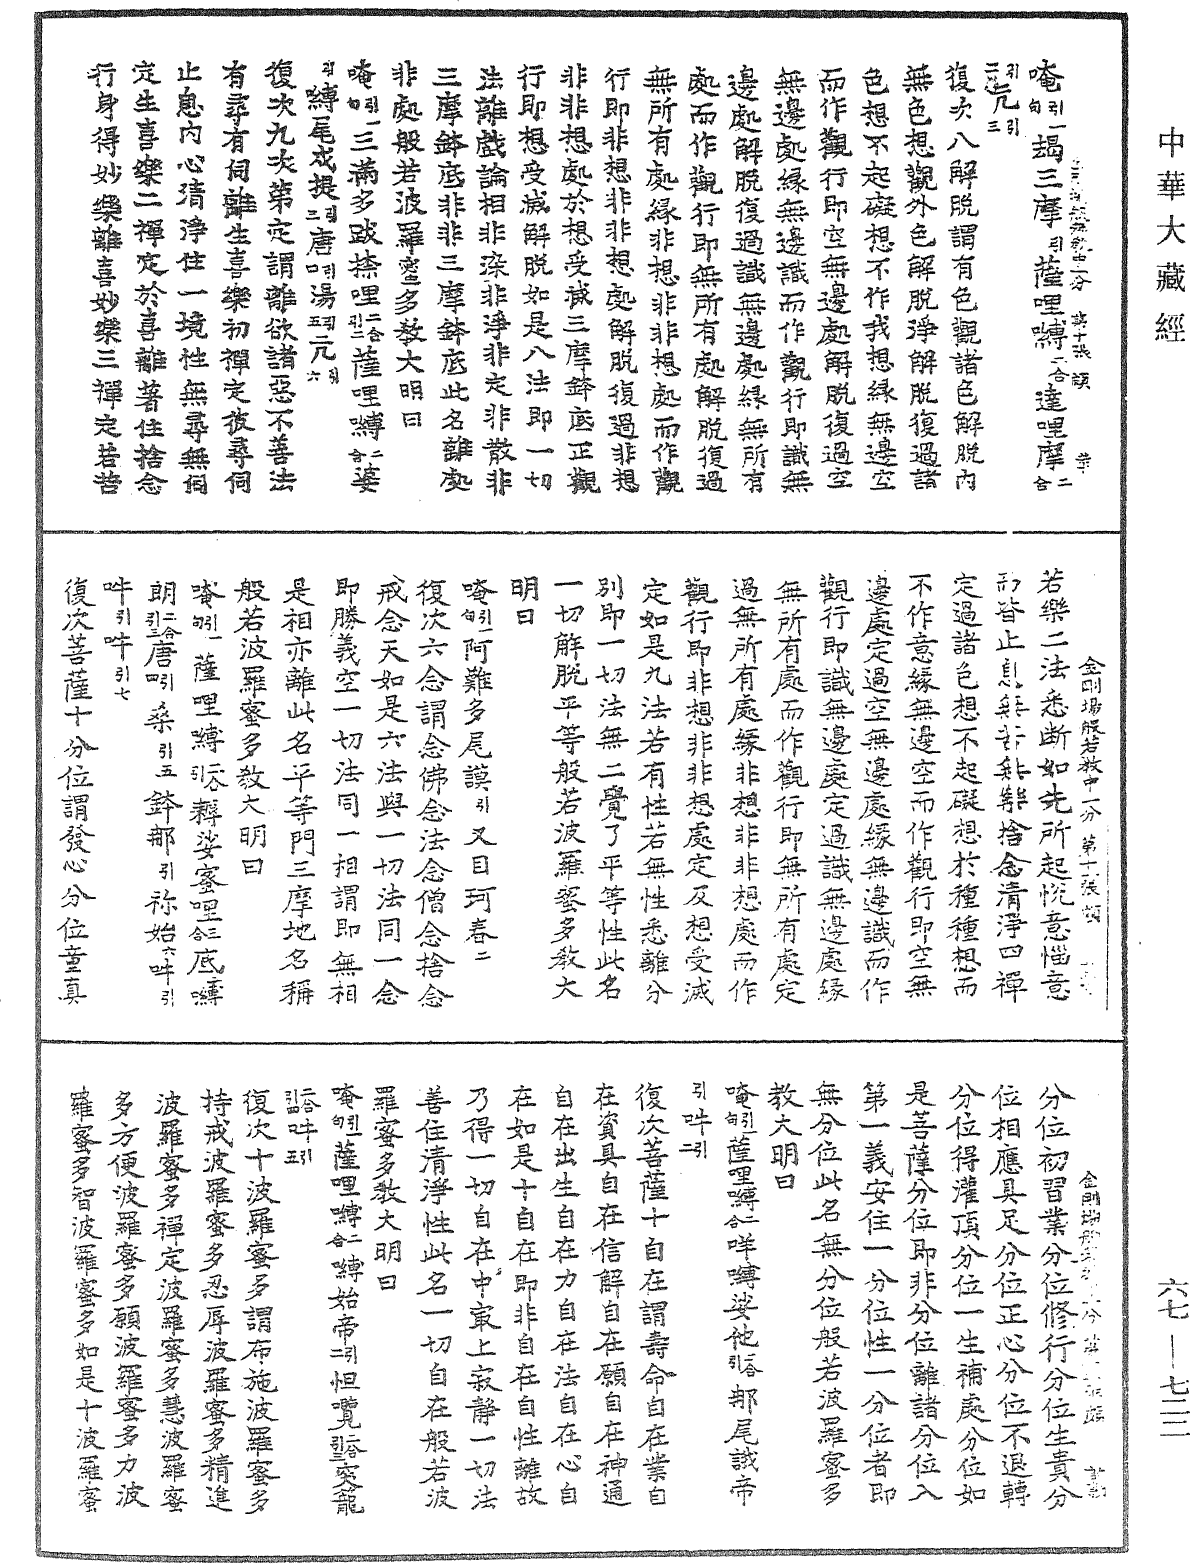 中華大藏經
唵引一句竭三摩引薩哩嚩二合達哩摩二合
引二吽引三
復次八解脫謂有色觀諸色解脫內
無色想觀外色解脫淨解脫復過諸
色想不起礙想不作我想緣無邊空
而作觀行即空無邊處解脫復過空
無邊處緣無邊識而作觀行即識無
邊處解脫復過識無邊處緣無所有
處而作觀行即無所有處解脫復過
無所有處緣非想非非想處而作觀
行即非想非非想處解脫復過非想
非非想處於想受滅三摩鉢底正觀
行即想受滅解脫如是八法即一切
法離戲論相非染非淨非定非散非
三摩鉢底非非三摩鉢底此名離處
非處般若波羅蜜多教大明曰
唵引一句三滿多跋捺哩二合引二薩哩嚩二合婆
引嚩尾戍提引三唐引四湯引五吽引六
復次九次第定謂離欲諸惡不善法
有尋有伺離生喜樂初禪定彼尋伺
止息內心清淨住一境性無尋無伺
定生喜樂二禪定於喜離著住捨念
行身得妙樂離喜妙樂三禪定若苦
金剛場般若教中一分 第十一張 頌
若樂二法悉斷如先所起悅意惱意
而皆止息無苦無樂捨念清淨四禪
定過諸色想不起礙想於種種想而
不作意緣無邊空而作觀行即空無
邊處定過空無邊處緣無邊識而作
觀行即識無邊處定過識無邊處緣
無所有處而作觀行即無所有處定
過無所有處緣非想非非想處而作
觀行即非想非非想處定及想受滅
定如是九法若有性若無性悉離分
別即一切法無二覺了平等性此名
一切解脫平等般若波羅蜜多教大
明曰
唵引一句阿難多尾謨引叉目珂春二
復次六念謂念佛念法念僧念捨念
戒念天如是六法與一切法同一念
即勝義空一切法同一相謂即無相
是相亦離此名平等門三摩地名稱
般若波羅蜜多教大明曰
唵引一句薩哩嚩二合引耨娑蜜哩三合底嚩
朗二合引三唐引四桑引五鉢那引祢始六吽引
吽引引吽引七
復次菩薩十分位謂發心分位童真
分位初習業分位修行分位生貴分
位相應具足分位正心分位不退轉
分位得灌頂分位一生補處分位如
是菩薩分位即非分位離諸分位入
第一義安住一分位性一分位者即
無分位此名無分位般若波羅蜜多
教大明曰
唵引一句薩哩嚩二合咩嚩娑他二合引那尾誐帝
引吽引二
復次菩薩十自在謂壽命自在業自
在資具自在信解自在願自在神通
自在出生自在力自在法自在心自
在如是十自在即非自在自性離故
乃得一切自在中最上寂靜一切法
善住清淨性此名一切自在般若波
羅蜜多教大明曰
唵引一句薩哩嚩二合嚩始帝引二怛囕二合引三突籠
二合引四吽引五
復次十波羅蜜多謂布施波羅蜜多
持戒波羅蜜多忍辱波羅蜜多精進
波羅蜜多禪定波羅蜜多慧波羅蜜
多方便波羅蜜多願波羅蜜多力波
羅蜜多智波羅蜜多如是十波羅蜜
六七—七二二